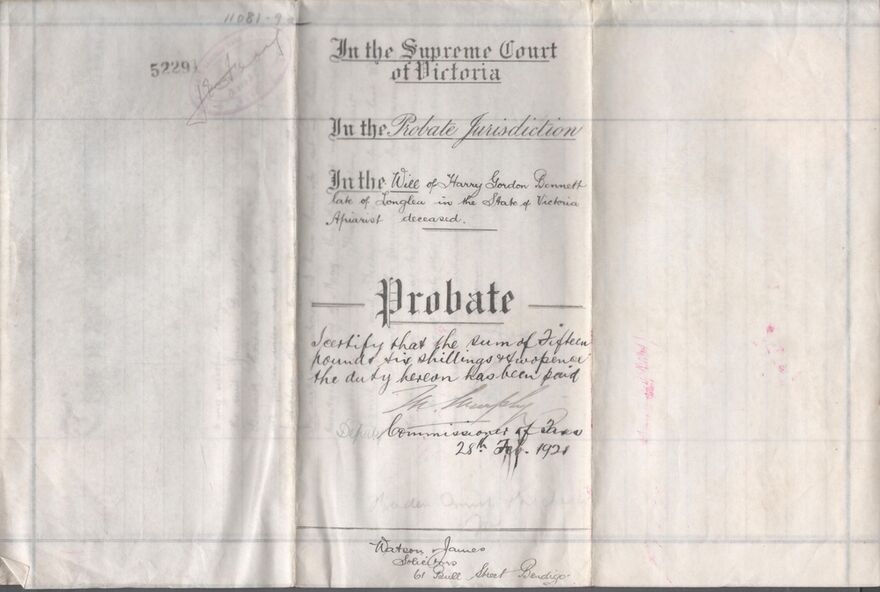 11081-9
52291
In the Supreme Court
of Victoria
In the Probate Jurisdiction
In the Will of Harry Gordon Bennett
late of Longlea in the State of Victoria
Apiarist deceased.
Probate
I certify that the sum of Fifteen
pounds six shillings & twopence
the duty hereon has been paid
M. Murphy
Commissioner of Taxes
28th Feb. 1921
Watson & James
Solicitors
61 Bull Street Bendigo